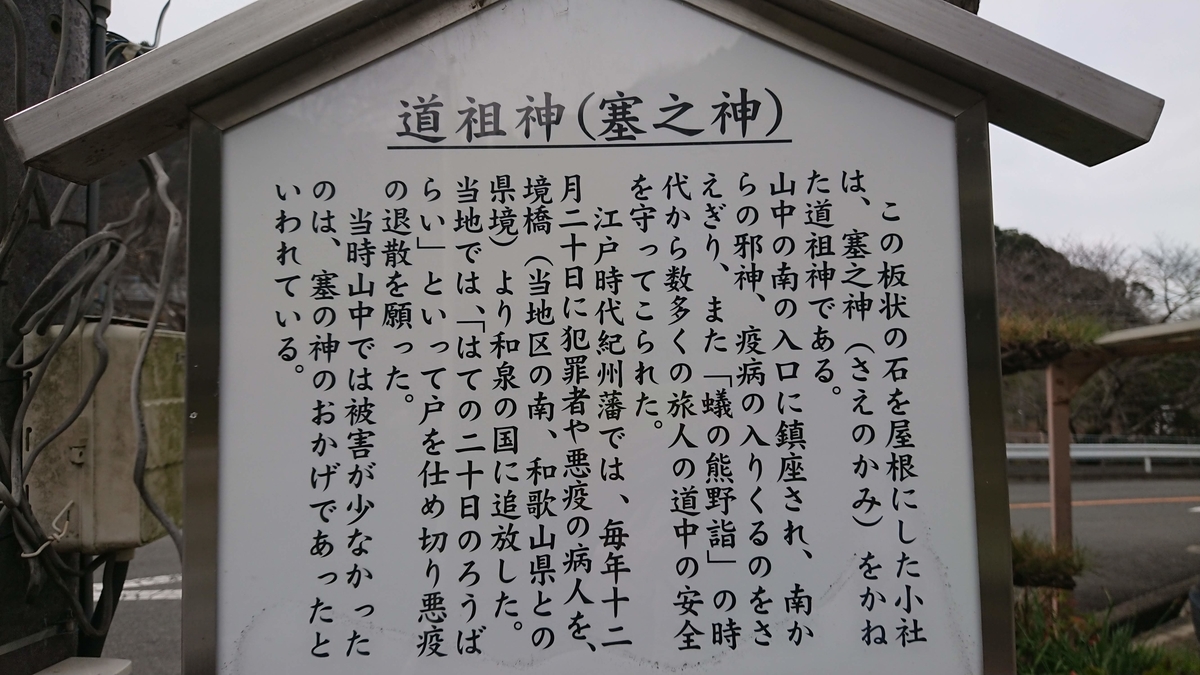 道祖神(塞之神)
この板状の石を屋根にした小社
は、塞之神（さえのかみ）をかね
た道祖神である。
山中の南の入口に鎮座され、南か
らの邪神、疫病の入りくるのをさ
えぎり、また「蟻の熊野詣」の時
代から数多くの旅人の道中の安全
を守ってこられた。
江戸時代紀州藩では、毎年十二
月二十日に犯罪者や悪疫の病人を、
境橋（当地区の南、和歌山県との
県境）より和泉の国に追放した。
当地では、「はての二十日のろうば
らい」といって戸を仕め切り悪疫
の退散を願った。
当時山中では被害が少なかった
のは、塞の神のおかげであったと
いわれている。